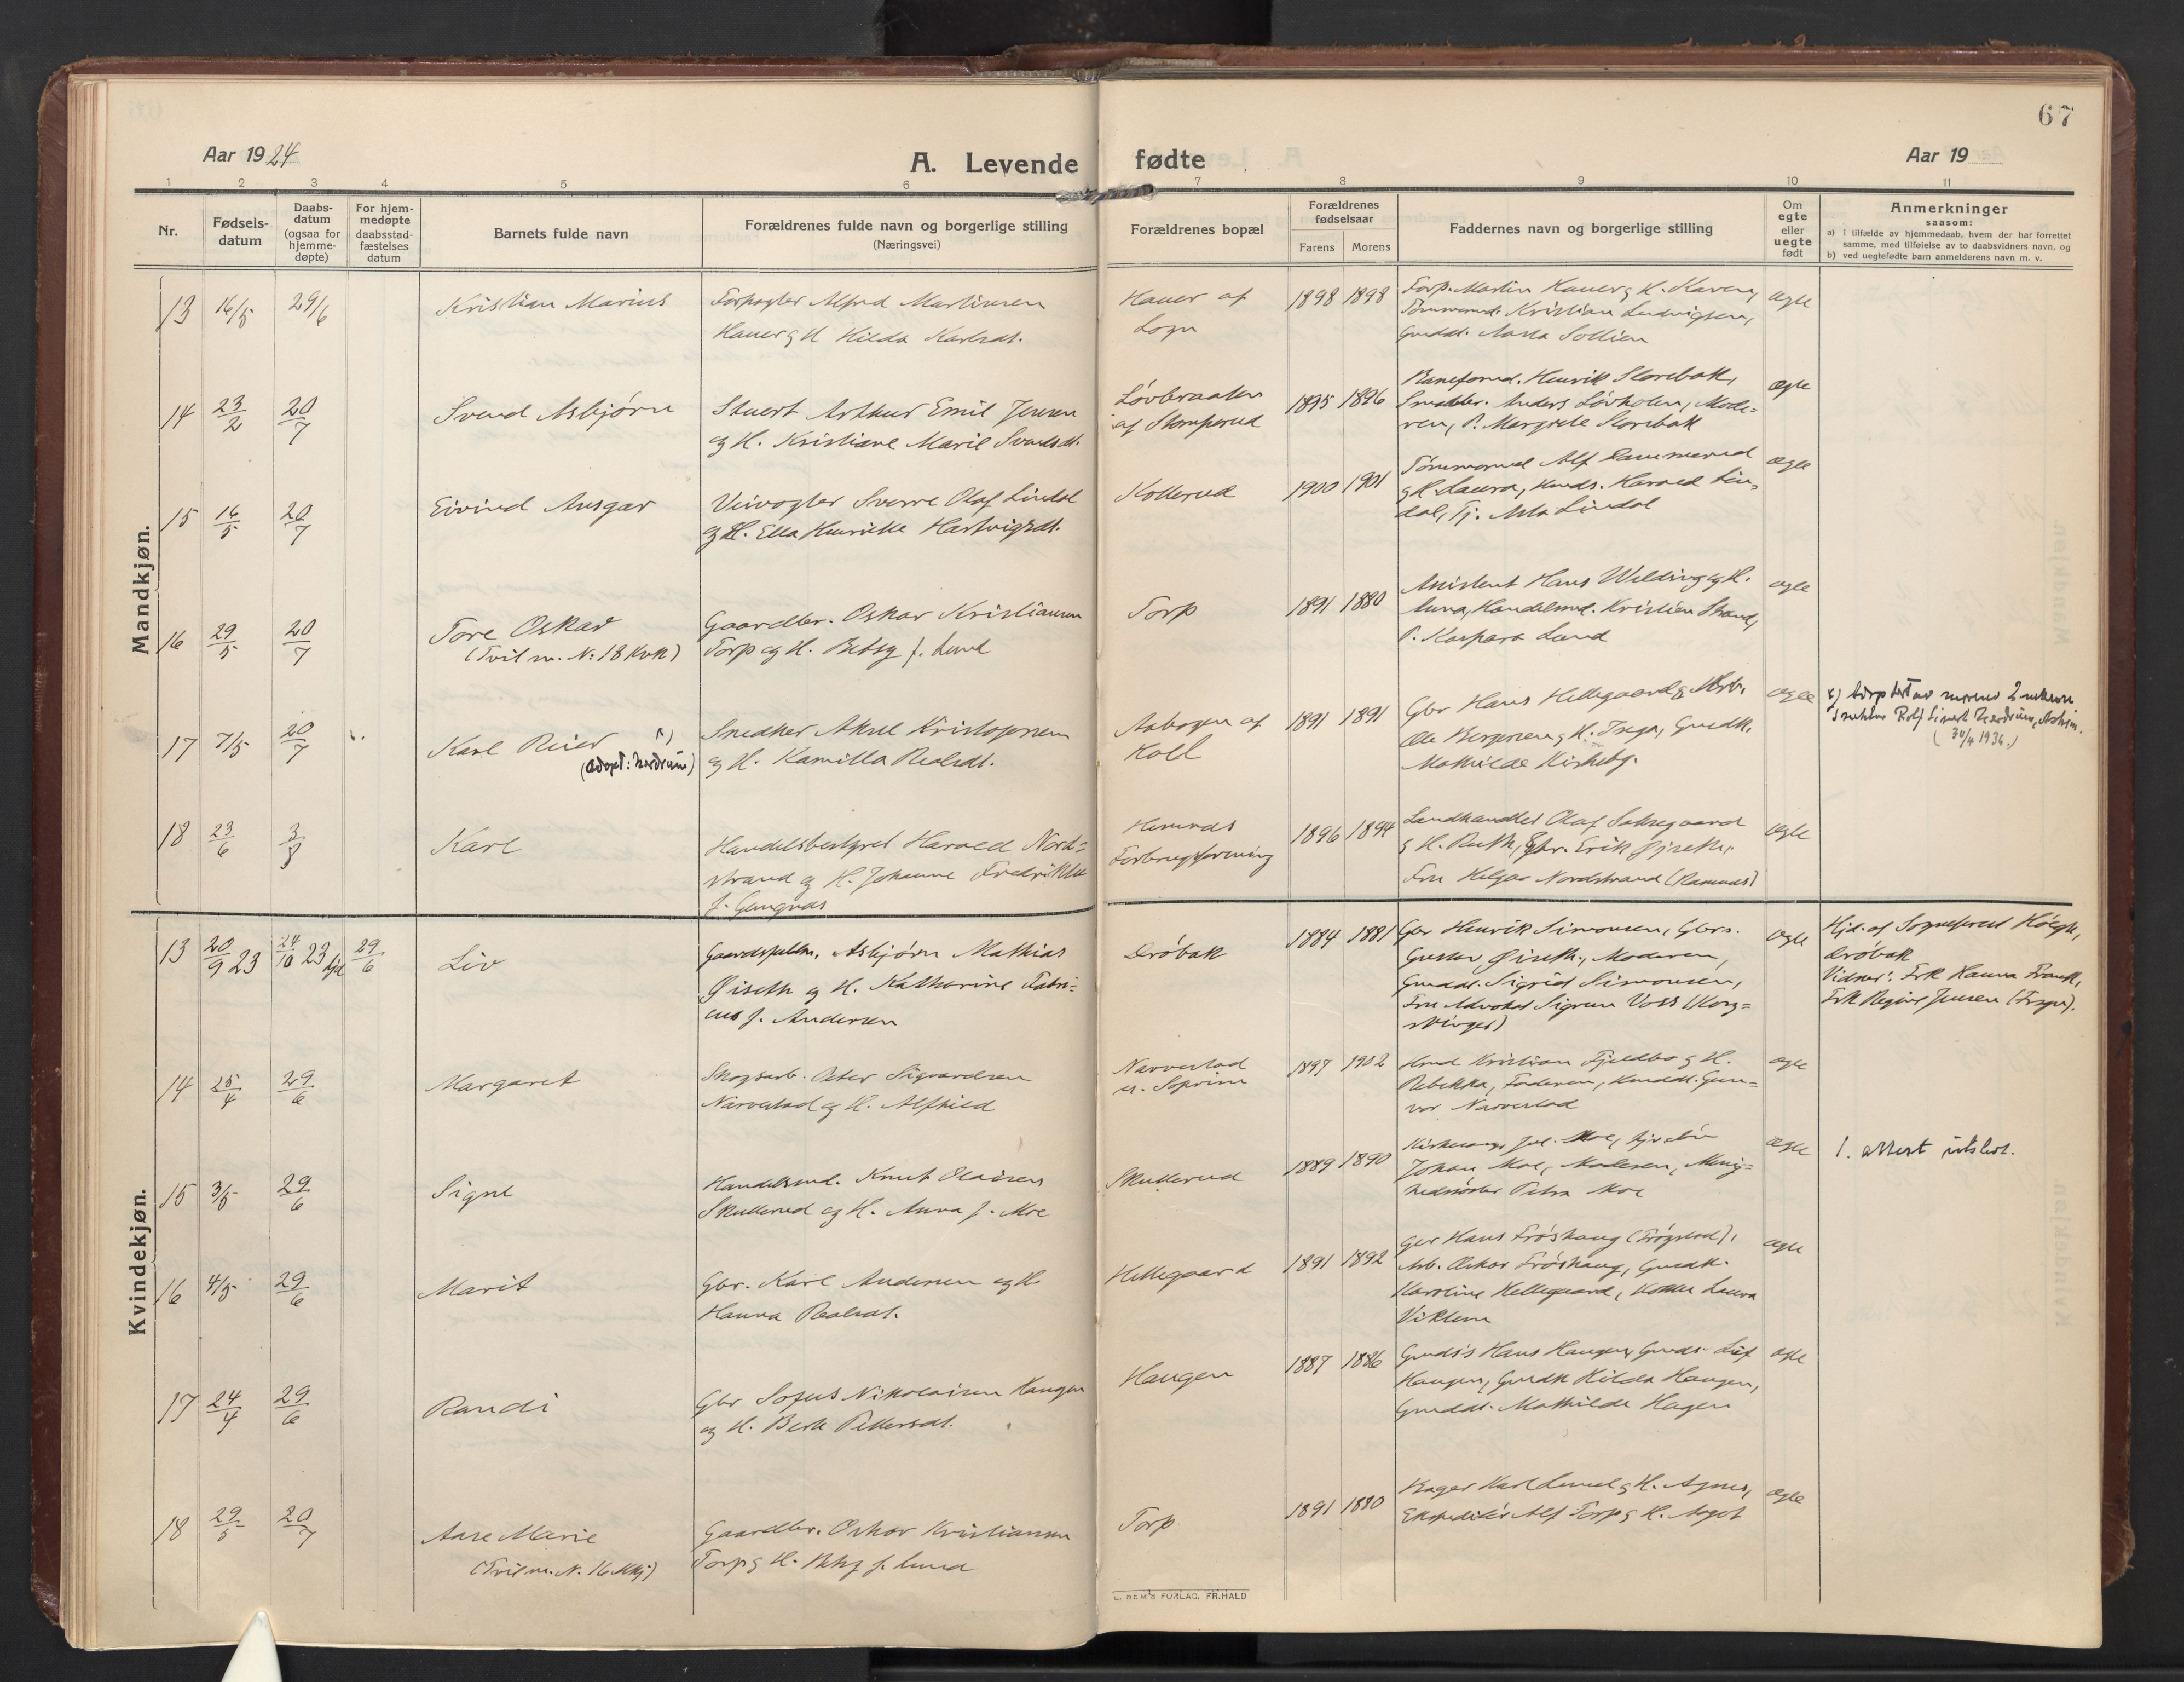 67
Aar 1924
A. Levende fødte
Aar 19
1 2 3 4 5 6 7 8 9 10 11
Nr.
Fødsels-
datum
Daabs-
datum
(ogsaa for
hjemme-
døpte)
For hjem-
medøpte
daabsstad-
fæstelses
datum
Barnets fulde navn
Forældrenes fulde navn og borgerlige stilling
(Næringsvei)
Forældrenes bopæl
Forældrenes
fødselsaar
Farens Morens
Faddernes navn og borgerlige stilling
Om
egte
eller
uegte
født
Anmerkninger
saasom:
a) i tilfælde av hjemmedaab, hvem der har forrettet
samme, med tilføielse av to daabsvidners navn, og
b) ved uegtefødte barn anmelderens navn m. v.
Mandkjøn.
13 16/5 29/6
Kristian Marius
Alfred Martinsen
Hauer og H. Hilda Karlsdt.
Hauer af
Sogn
1898 1898
Martin Hauer og H. Karen,
Kristian Ludvigsen,
Sollien
egte
14 23/2 20/7
Svend Asbjørn
Stuert Arthur Emil Jensen
og H. Kristiane Marie Svendsdt.
Løvbraaten
af Slomperud
1895 1896
Baneformd. Henrik Storebak,
Anders Løvholen, Mode-
ren, P. Margrete Storebak
egte
15 16/5 20/7
Eivind Ansgar
Veivogter Sverre Olaf Lindal
og H. Ella Henrikke Hartvigsdt.
Kollerud
1900 1901
Tømmermd Alf Dammerud
og H. Laura, Harald Lin-
dal, Tj. Asta Lindal
egte
16 29/5 20/7
Tore Oskar
(Tvil m. N. 18 Kvk)
Gaardbr. Oskar Kristiansen
Torp og H. Betsy f. Lund
Torp
1891 1880
Assistent Hans Wilding og H.
Anna, Handelsmd. Kristian Strand,
P. Kaspara Lund
egte
17 7/5 20/7
Karl Reier x)
(adopt: Nordrum)
Snedker Aksel Kristofersen
og H. Kamilla Realsdt.
Aabogen af
Koll
1891 1891
Gbr Hans Hellegaard og
Ole Bergersen og H. Inga, Gmdk.
Mathilde Kirkeby.
egte
x) Adoptert av morens 2 ektem.
snekker Rolf Sivert Nordrum, Askim.
(30/4 1936.)
18 23/6 3/8
Karl
Handelsbestyrer Harald Nord-
strand og H. Johanne Fredrikke
f. Gangnæs
Hemnæs
Forbrugsforening
1896 1894
Landhandler Olaf Saksegaard
og H. Ruth, Gbr. Erik Gjseth,
Fru Helga Nordstrand (Ramnæs)
egte
Kvindekjøn.
13 20/9 23 24/10 23 hjd 29/6
Liv
Asbjørn Mathias
Øiseth og H. Katharine Fabri-
cius f. Andersen
Drøbak
1884 1881
Gbr Henrik Simonsen, Gbrs.
Gustav Øiseth, Moderen,
Gmdd. Sigrid Simonsen,
Fru Advokat Sigrun Voss (Kong-
svinger)
egte
Hjd. af Sogneprest Høegh,
Drøbak
Vidner: Frk Hanna Frank,
Frk Regine Jensen (Frogn).
14 25/4 29/6
Margaret
Skogsarb. Peter Sigvardsen
Narvestad og H. Alfhild
Narvestad
u. Soprim
1897 1902
Kristian Fjeldbo og H.
Rebekka, Faderen, Gun-
vor Narvestad
egte
15 3/5 29/6
Signe
Handelsmd. Knut Olaisen
Skullerud og H. Anna f. Moe
Skullerud
1889 1890
Kirkesanger Joh. Moe,
Johan Moe, Moderen, Menig-
hedssøster Petra Moe
egte
1. attest utsted.
16 4/5 29/6
Marit
Gbr. Karl Andersen og H.
Hanna Realsdt.
Hellegaard
1891 1892
Gbr Hans Frøshaug (Trøgstad),
Arb. Oskar Frøshaug, Gmdk.
Karoline Hellegaard, Laura
Viklem
egte
17 24/4 29/6
Randi
Gbr Sofus Nikolaisen Haugen
og H. Berte Pettersdt.
Haugen
1887 1886
Gmds's Hans Haugen, Gmds. Leif
Haugen, Gmdk Hilda Haugen,
Gmdd. Mathilde Hagen
egte
18 29/5 20/7
Aase Marie
(Tvil m. N. 16 Mkj)
Gaardbr. Oskar Kristiansen
Torp og H. Betsy f. Lund
Torp
1891 1880
Bager Karl Lund og H. Agnes,
Ekspeditør Alf Torp og H. Aagot
egte
E. SEM'S FORLAG. FR.HALD